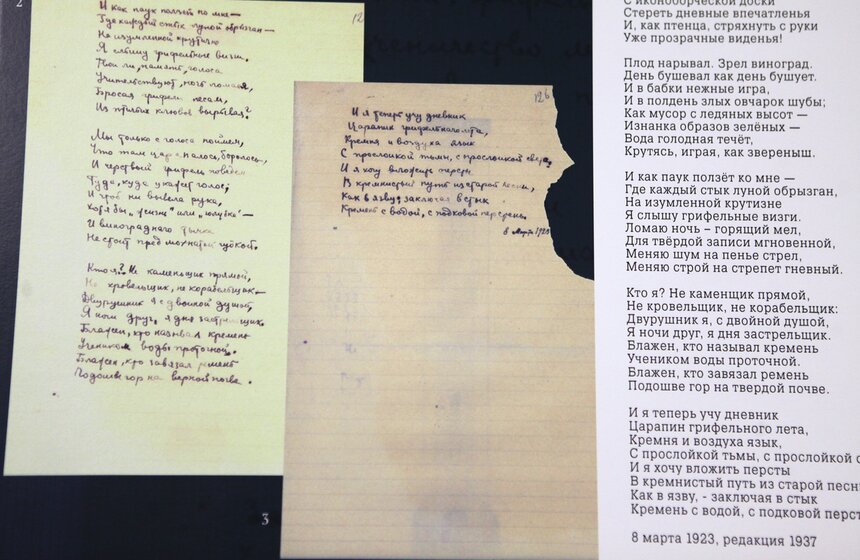 2
12
И как паук ползёт по мне —
Где каждый стык луной обрызган —
На изумленной крутизне
Я слышу грифельные визги.
Твои ли, память, голоса
Учительствуют, ночь ломая,
Бросая грифели лесам,
Из птичьих клювов вырывая?
Мы только с голоса поймем,
Что там царапалось, боролось,
И черствый грифель поведем
Туда, куда укажет голос;
И что б ни вывела рука,
Хотя бы „жизнь" или „голубка" —
И виноградного тычка
Не стоит пред мохнатой губкой.
Кто я? Не каменщик прямой,
Не кровельщик, не корабельщик —
Двурушник я с двойной душой,
Я ночи друг, я дня застрельщик.
Блажен, кто называл кремень
Учеником воды проточной.
Блажен, кто завязал ремень
Подошве гор на верной почве.
126
И я теперь учу дневник
Царапин грифельного лета,
Кремня и воздуха язык
С прослойкой тьмы, с прослойкой света,
И я хочу вложить персты
В кремнистый путь из старой песни,
Как в язву, заключая в стык
Кремень с водой, с подковой перстень.
8 Марта 1923
3
С иконоборческой доски
Стереть дневные впечатленья
И, как птенца, стряхнуть с руки
Уже прозрачные виденья!
Плод нарывал. Зрел виноград.
День бушевал как день бушует.
И в бабки нежные игра,
И в полдень злых овчарок шубы;
Как мусор с ледяных высот —
Изнанка образов зелёных —
Вода голодная течёт,
Крутясь, играя, как звереныш.
И как паук ползёт ко мне —
Где каждый стык луной обрызган,
На изумленной крутизне
Я слышу грифельные визги.
Ломаю ночь – горящий мел,
Для твёрдой записи мгновенной,
Меняю шум на пенье стрел,
Меняю строй на стрепет гневный.
Кто я? Не каменщик прямой,
Не кровельщик, не корабельщик:
Двурушник я, с двойной душой,
Я ночи друг, я дня застрельщик.
Блажен, кто называл кремень
Учеником воды проточной.
Блажен, кто завязал ремень
Подошве гор на твердой почве.
И я теперь учу дневник
Царапин грифельного лета,
Кремня и воздуха язык,
С прослойкой тьмы, с прослойкой с
И я хочу вложить персты
В кремнистый путь из старой песн
Как в язву, - заключая в стык
Кремень с водой, с подковой перст
8 марта 1923, редакция 1937